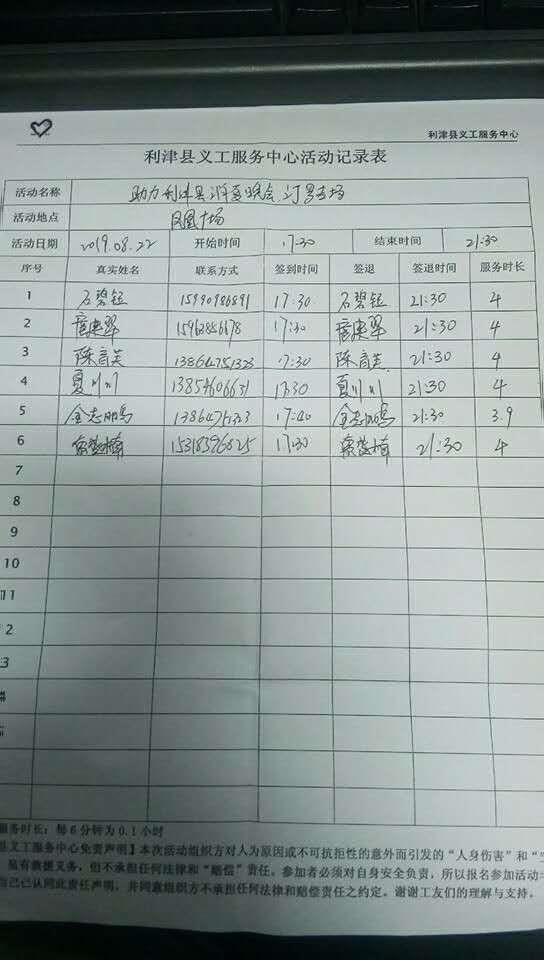 利津县义工服务中心
利津县义工服务中心活动记录表
活动名称 助力利津县消夏晚会 专场
活动地点 凤凰广场
活动日期 2019.08.22 开始时间 17:30 结束时间 21:30
序号 真实姓名 联系方式 签到时间 签退 签退时间 服务时长
1 石碧钰 15990986891 17:30 石碧钰 21:30 4
2 17:30 21:30 4
3 陈育芙 13864751323 17:30 陈育芙 21:30 4
4 夏川川 13854606631 17:30 夏川川 21:30 4
5 金志鹏 17:40 金志鹏 21:30 3.9
6 17:30 21:30 4
7
8
9
10
11
2
3
服务时长：每6分钟为0.1小时
县义工服务中心免责声明】本次活动组织方对人为原因或不可抗拒性的意外而引发的“人身伤害”和“
虽有救援义务，但不承担任何法律和“赔偿”责任。参加者必须对自身安全负责，所以报名参加活动
自己已认同此责任声明，并同意组织方不承担任何法律和赔偿责任之约定。谢谢工友们的理解与支持。